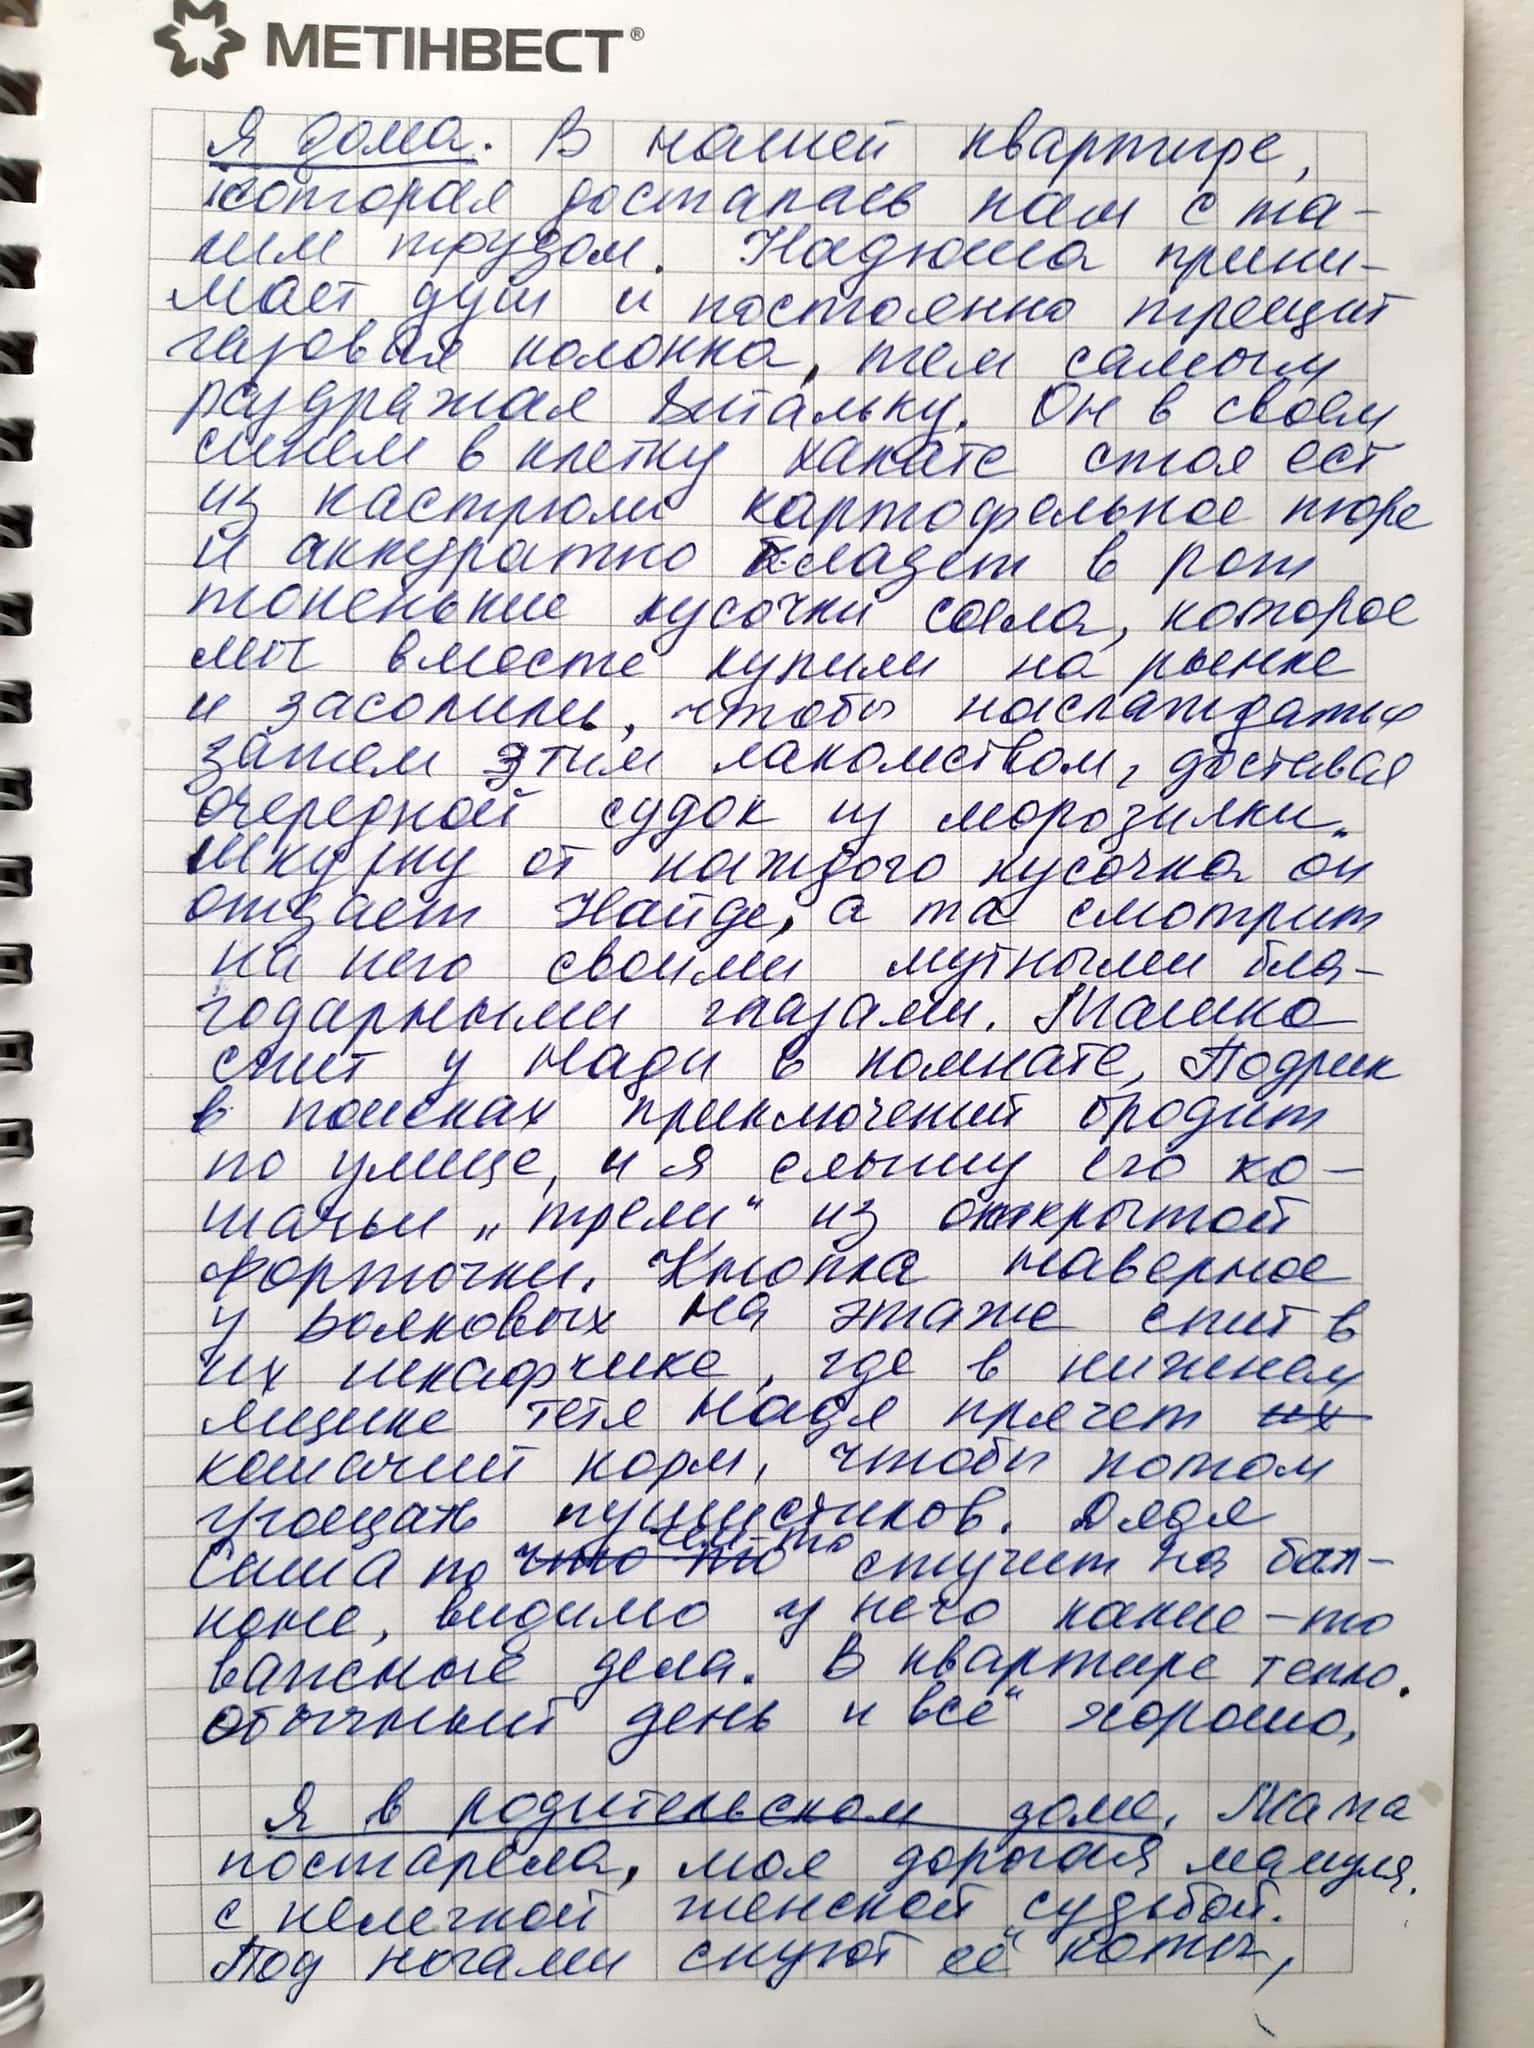 МЕТІНВЕСТ®
Я дома. В нашей квартире,
которая досталась нам с та-
ким трудом. Надюша прини-
мает душ и постоянно трещит
газовая колонка, тем самым
раздражая Витальку. Он в своем
синем в клетку халате стоя ест
из кастрюли картофельное пюре
и аккуратно кладет в рот
тоненькие кусочки сала, которое
мы вместе купили на рынке
и засолили, чтобы наслаждаться
затем этим лакомством, доставая
очередной судок из морозилки.
Шкурку от каждого кусочка он
отдает Найде, а та смотрит
на него своими мутными бла-
годарными глазами. Машка
спит у Нади в комнате, Подрик
в поисках приключений бродит
по улице, и я слышу его ко-
шачьи „трели“ из открытой
форточки. Кнопка наверное
у Волковых на этаже спит в
их шкафчике, где в нижнем
ящике тетя Надя прячет их
кошачий корм, чтобы потом
угощать пушистиков. Дядя
Саша по что-то чем-то стучит на бал-
коне, видимо у него какие-то
важные дела. В квартире тепло.
Обычный день и всё хорошо.
Я в родительском доме. Мама
постарела, моя дорогая мамуля
с нелегкой женской судьбой.
Под ногами снуют её коты,